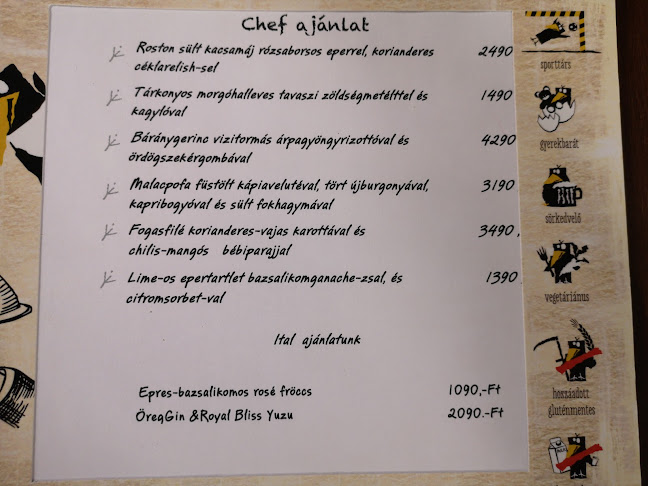 Chef ajánlat
Roston sült kacsamáj rózsaborsos eperrel, korianderes 2490
céklarelish-sel
Tárkonyos morgóhalleves tavaszi zöldségmetélttel és 1490
kagylóval
Báránygerinc vizitormás árpagyöngyrizottóval és 4290
ördögszekérgombával
Malacpofa füstölt kápiavelutéval, tört újburgonyával, 3190
kapribogyóval és sült fokhagymával
Fogasfilé korianderes-vajas karottával és 3490,
chilis-mangós bébiparajjal
Lime-os epertartlet bazsalikomganache-zsal, és 1390
citromsorbet-val
Ital ajánlatunk
Epres-bazsalikomos rosé fröccs 1090,-Ft
ÖregGin &Royal Bliss Yuzu 2090.-Ft
sporttárs
gyerekbarát
sörkedvelő
vegetáriánus
hozzáadott
gluténmentes